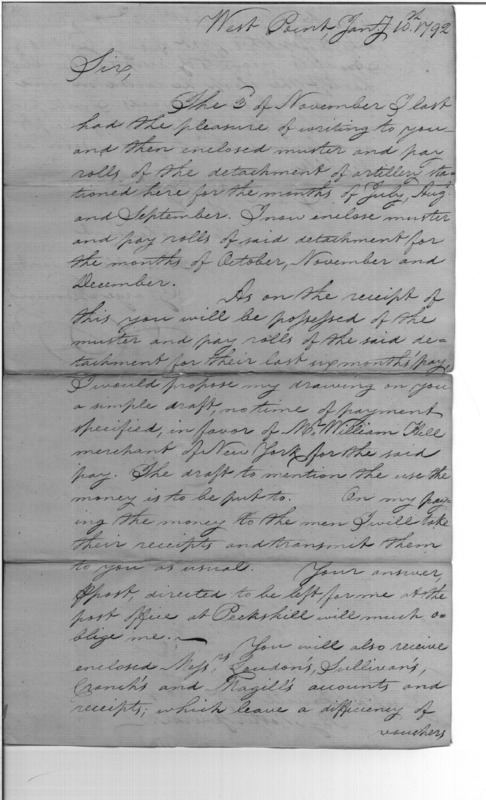 West Point, Jany 10th 1792
Sir,
The 3d of November I last
had the pleasure of writing to you
and then enclosed muster and pay
rolls of the detachment of artillery sta-
tioned here for the months of July, Augt
and September. I now enclose muster
and pay rolls of said detachment for
the months of October, November and
December.
As on the receipt of
this you will be possessed of the
muster and pay rolls of the said de-
tachment for their last six month's pay,
I would propose my drawing on you
a simple draft, no time of payment
specified, in favor of Mr. William Hill
merchant of New York for the said
pay. The draft to mention the use the
money is to be put to. On my pay-
ing the money to the men I will take
their receipts and transmit them
to you as usual. Your answer
post, directed to be left for me at the
post office at Peekskill will much o-
blige me.
You will also receive
enclosed Messrs Loudon's, Sullivan's,
Cranch's and Magill's accounts and
receipts; which leave a difficiency of
vouchers